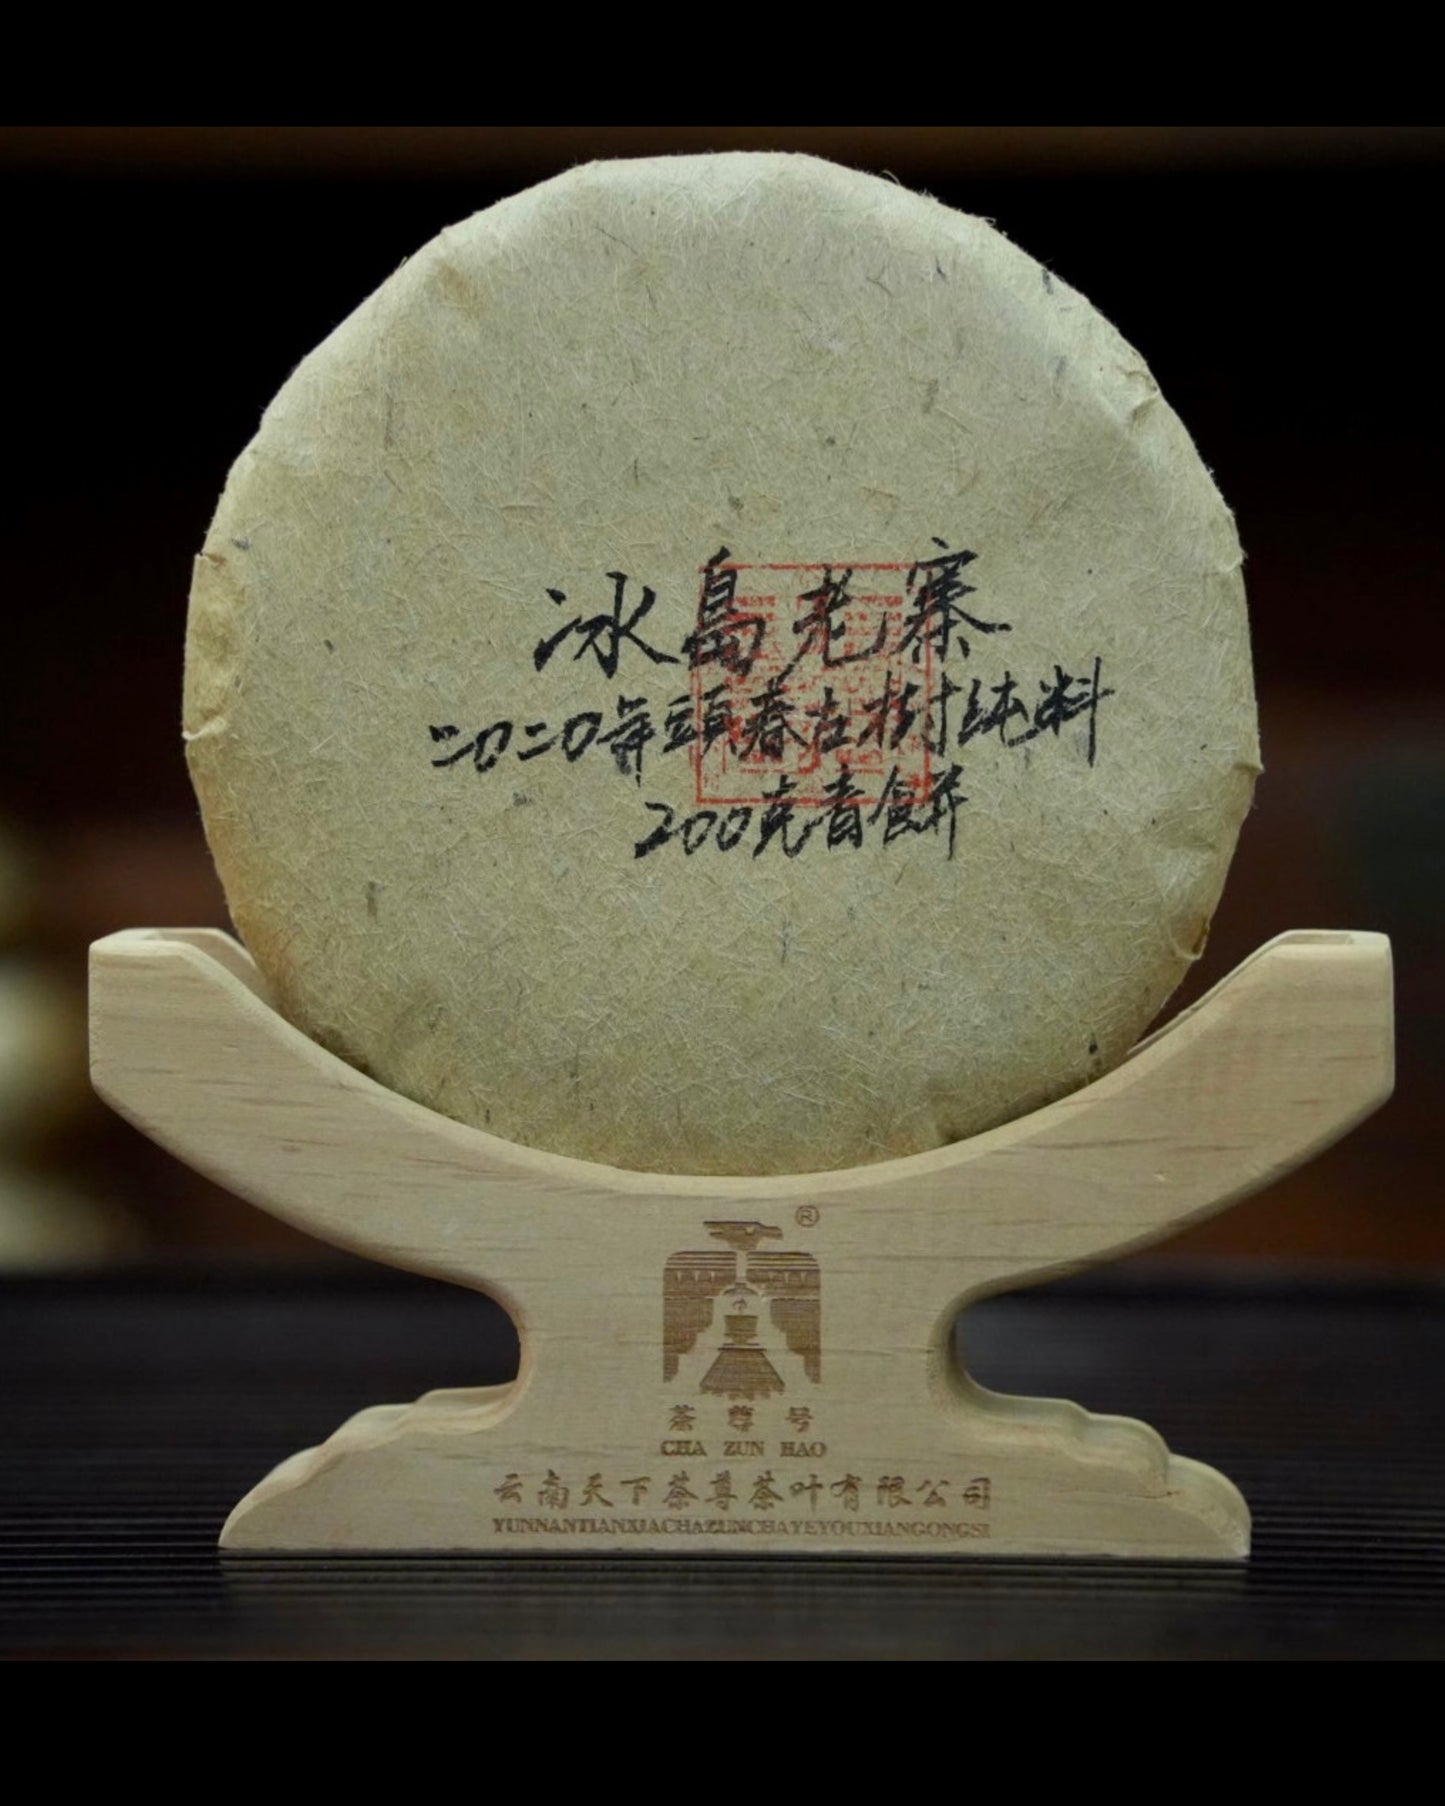 冰島老寨
二〇二〇年頭春古樹纯料
200克青餅
®
茶尊号
CHA ZUN HAO
云南天下茶尊茶叶有限公司
YUNNANTIANXIACHAZUNCHAYEYOUXIANGONGSI